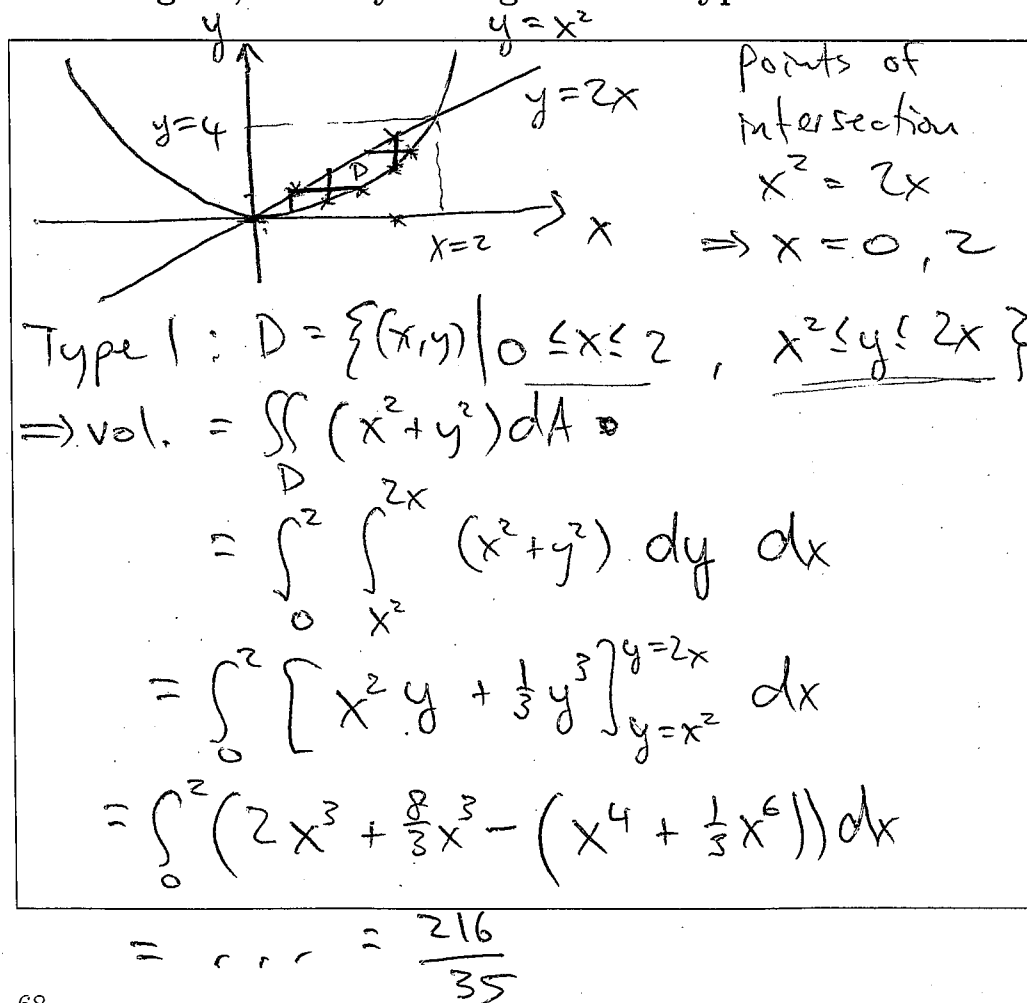 y y = x²
y=4 y=2x
D
x=2 x
points of
intersection
x² = 2x
⇒ x = 0, 2
Type 1 : D = {(x,y) | 0 ≤ x ≤ 2 , x² ≤ y ≤ 2x }
⇒ vol. = ∬_D (x² + y²) dA
= ∫_0^2 ∫_{x²}^{2x} (x² + y²) dy dx
= ∫_0^2 [ x² y + 1/3 y³ ]_{y=x²}^{y=2x} dx
= ∫_0^2 (2x³ + 8/3 x³ − (x⁴ + 1/3 x⁶)) dx
= ... = 216/35